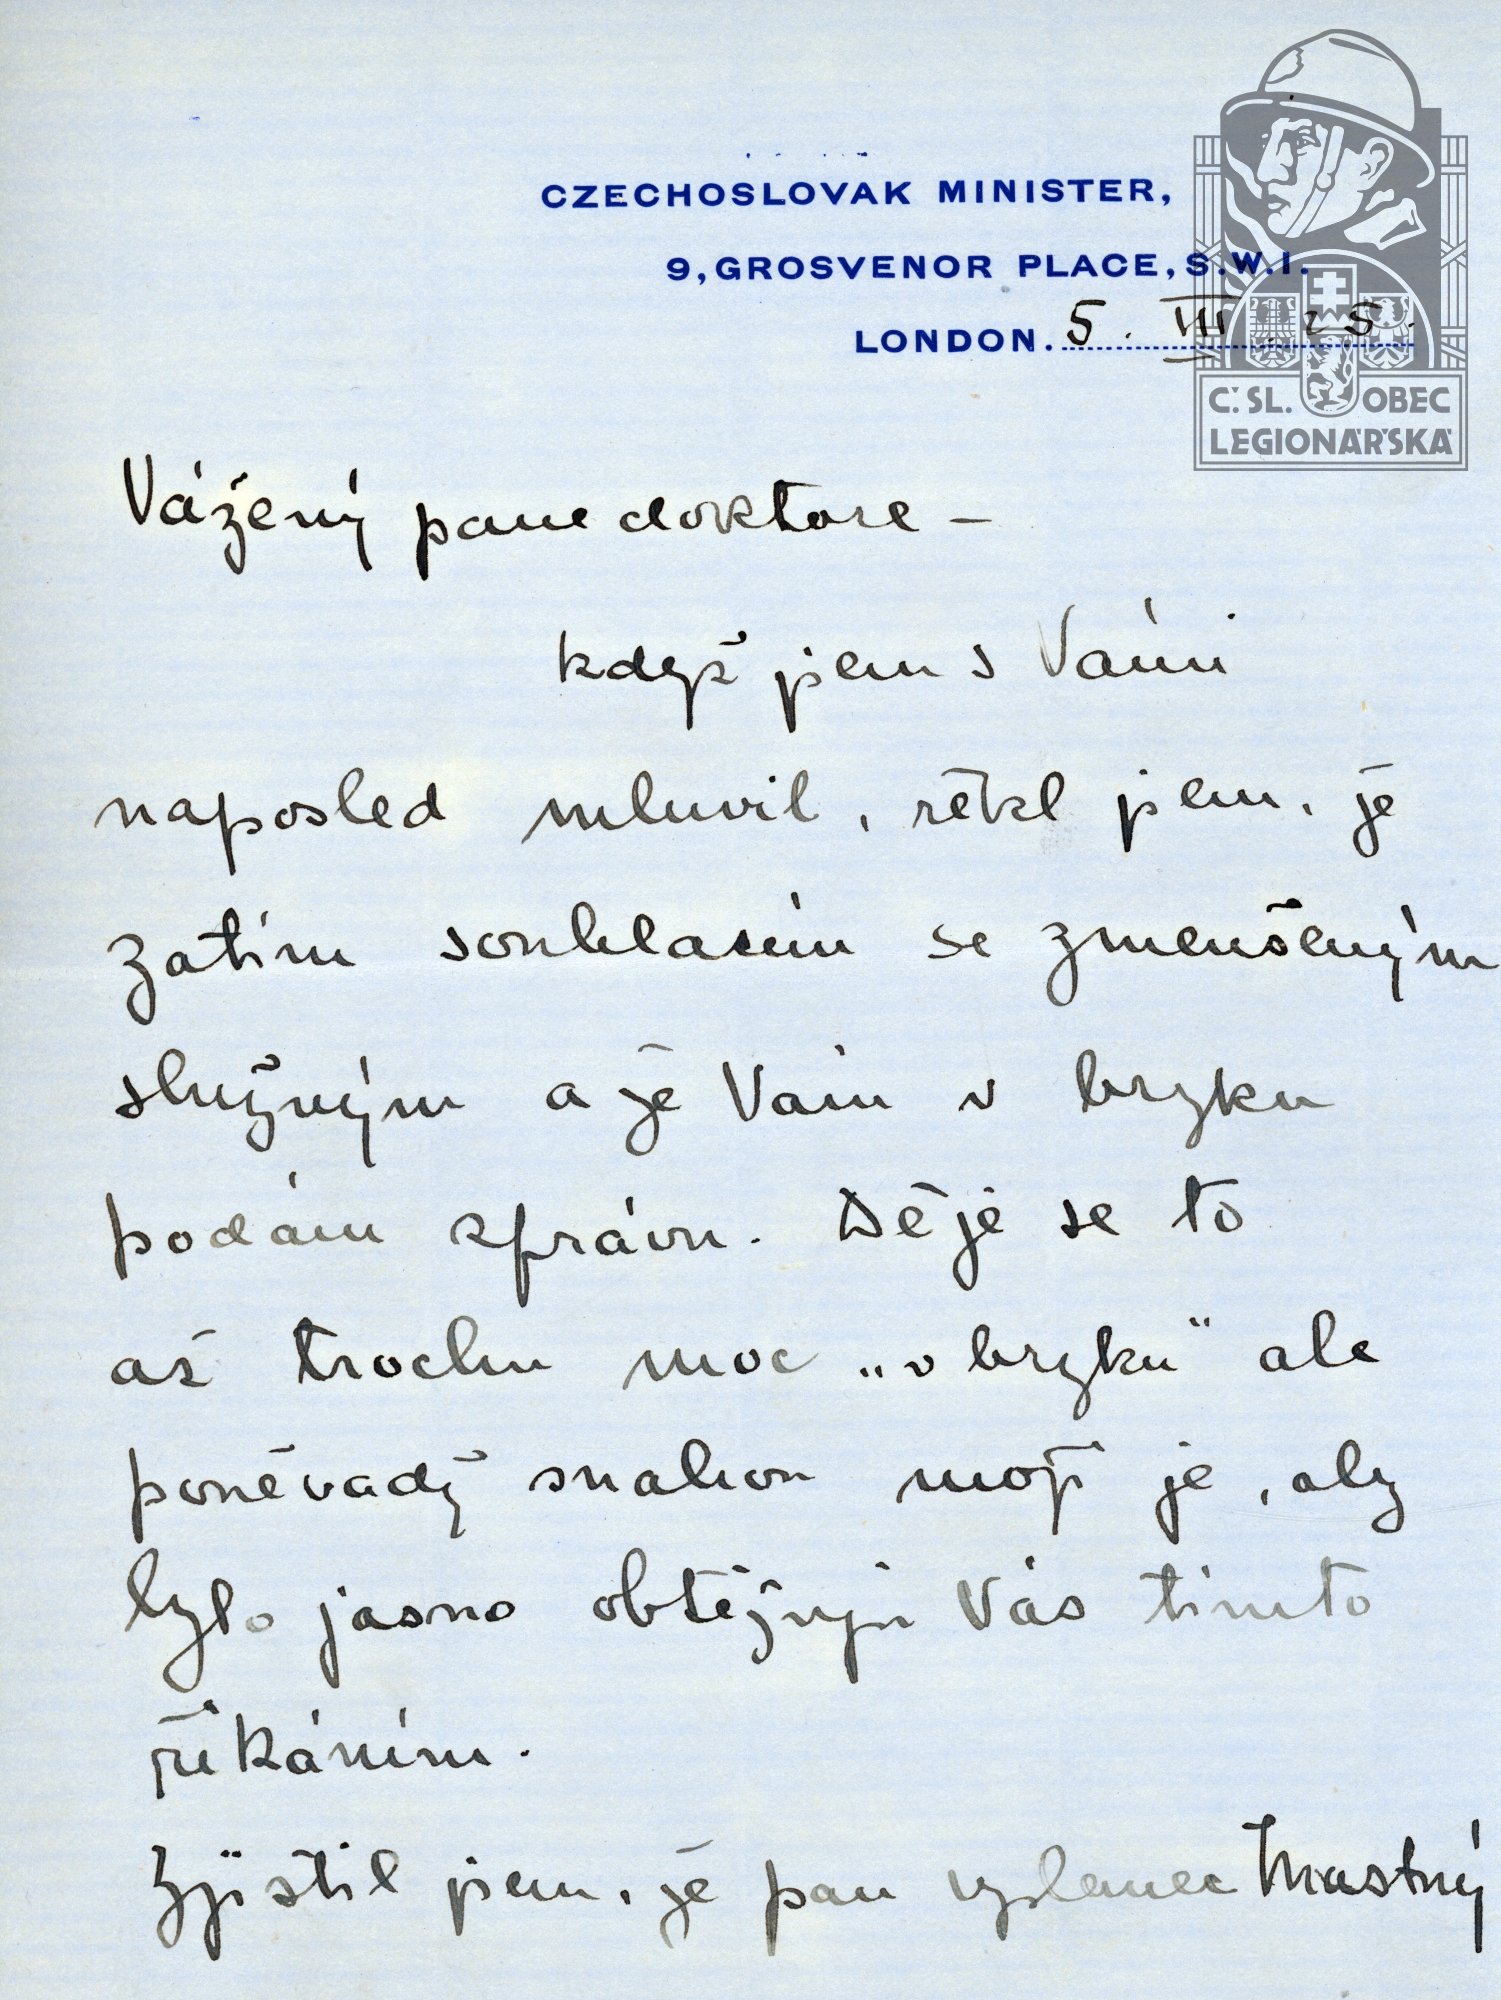 CZECHOSLOVAK MINISTER,
9, GROSVENOR PLACE, S.W.1.
LONDON. 5. III 25.
Č.SL. OBEC
LEGIONÁŘSKÁ
Vážený pane doktore –
když jsem s Vámi
naposled mluvil, řekl jsem, že
zatím souhlasím se zmenšeným
služným a že Vám v brzku
podám zprávu. Děje se to
až trochu moc „v brzku" ale
poněvadž snahou mojí je, aby
bylo jasno obtěžuji Vás tímto
říkáním.
Zjistil jsem, že pan vyslanec Mastný